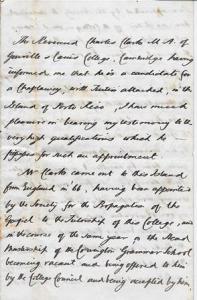 The Reverend Charles Clarke M.A. of
Gonville & Caius College, Cambridge having
informed me that he is a candidate for
a Chaplaincy, with duties attached, in the
Island of Porto Rico, I have much
pleasure in bearing my testimony to the
very high qualifications which he
possesses for such an appointment.
Mr Clarke came out to this Island
from England in 66, having been appointed
by the Society for the Propagation of the
Gospel to the Tutorship of this College, and
in the course of the same year, the Head
Mastership of the Codrington Grammar School
becoming vacant and being offered to him
by the College Council and being accepted by him